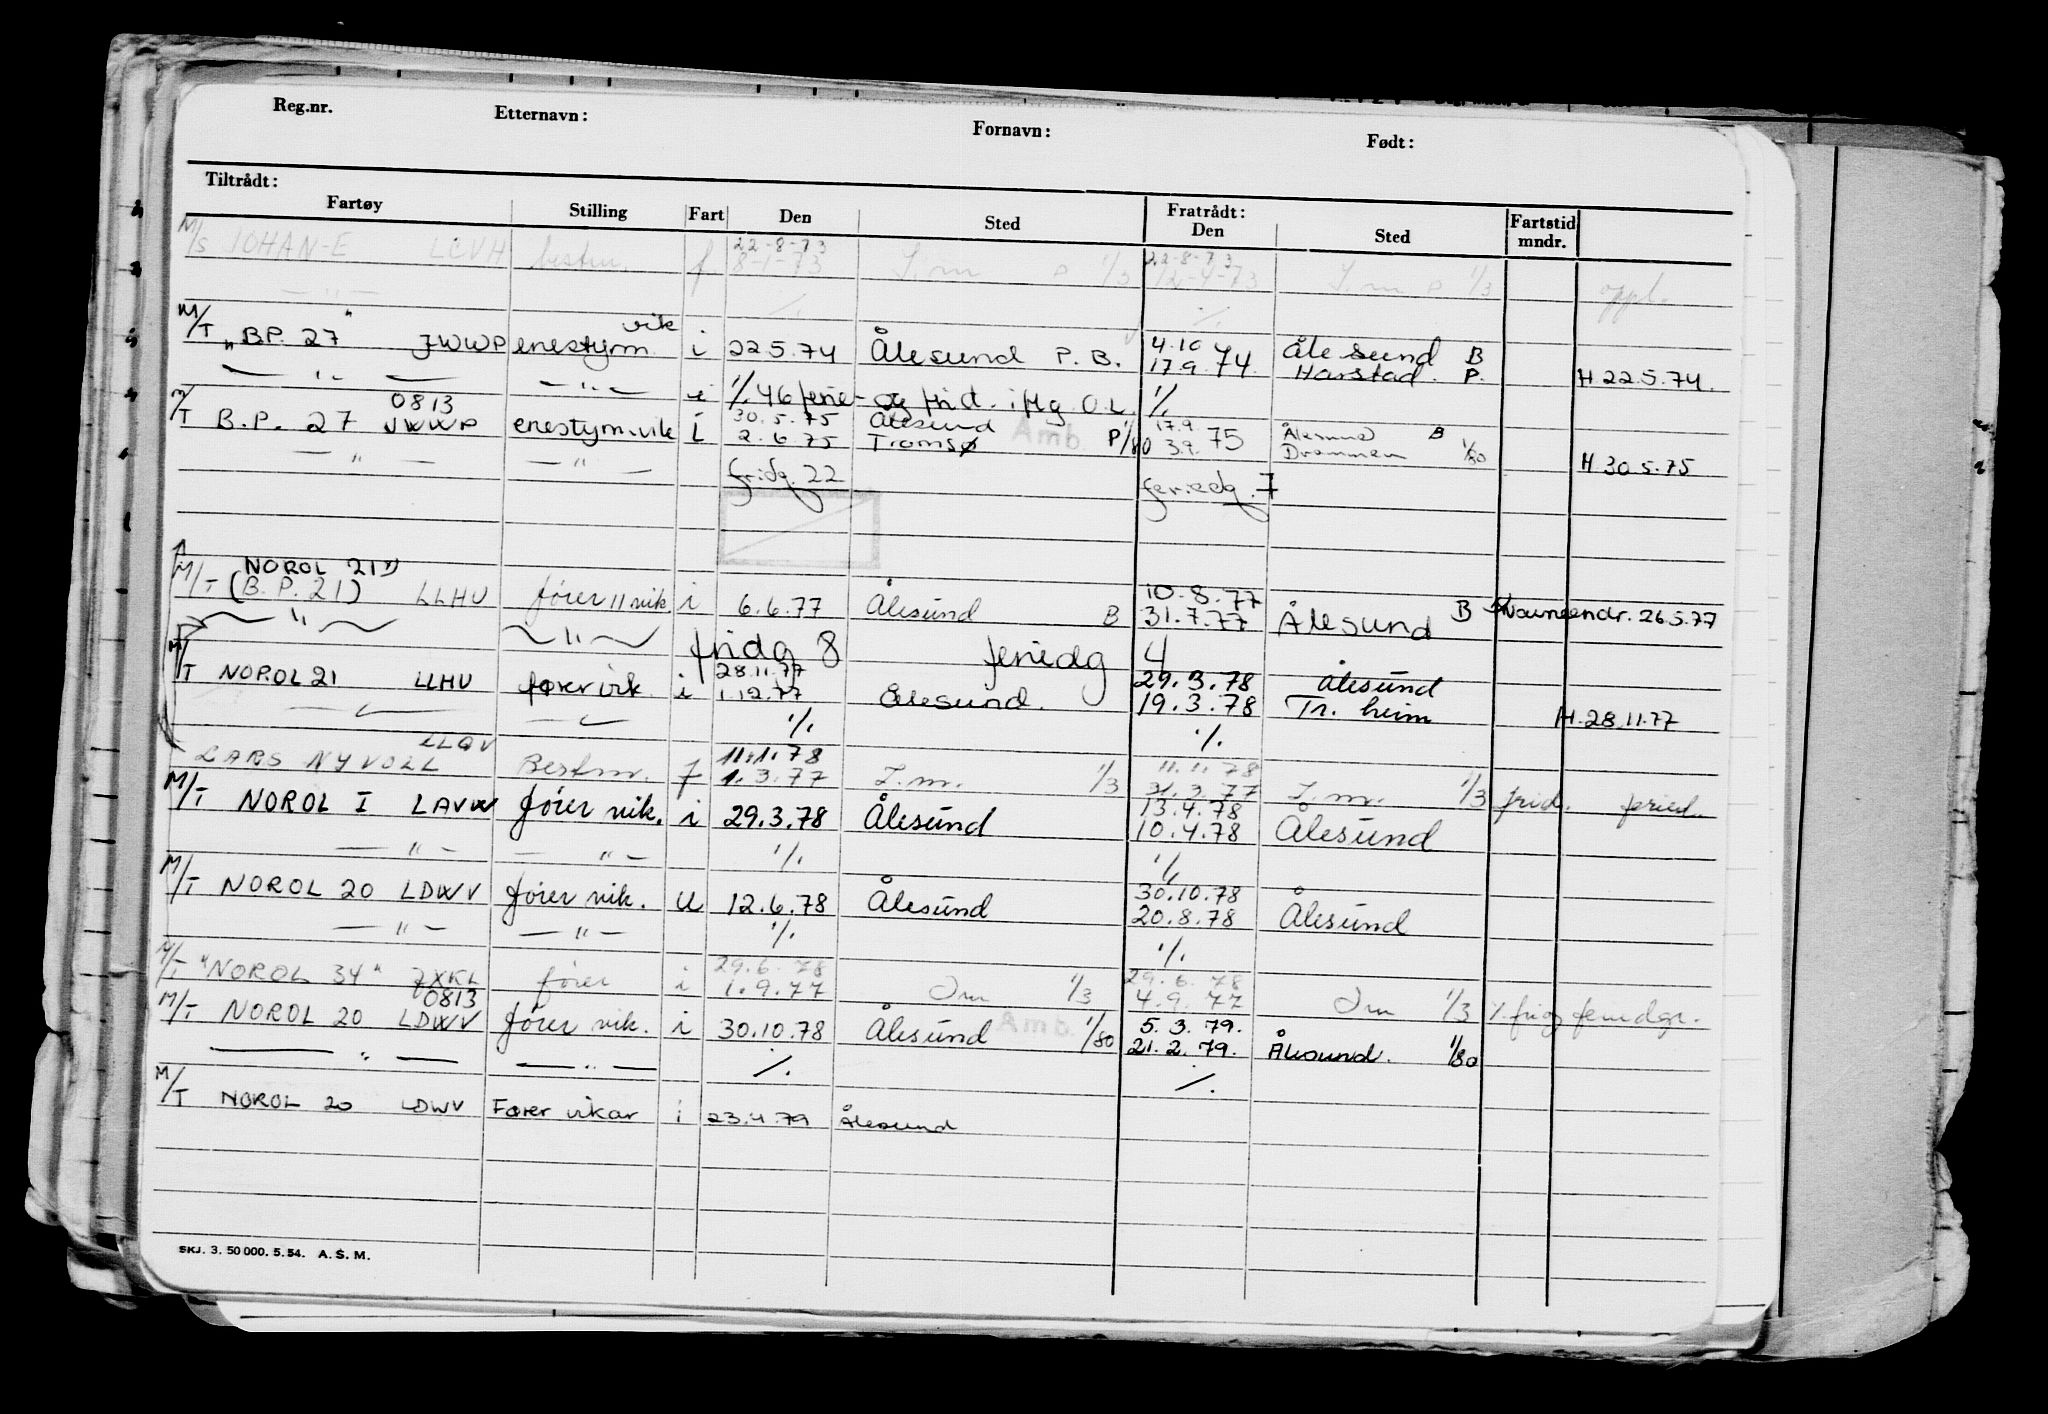 Reg.nr. Etternavn: Fornavn: Født:
Tiltrådt: Fratrådt:
Fartøy Stilling Fart Den Sted Den Sted Fartstid mndr.
22-8-73 22-8-73
M/S JOHAN-E LCVH bestm. f 8-1-73 I.m P 1/3 12-4-73 I.m P 1/3 oppl.
— " — ./. ./.
vik 4.10
M/T "B.P. 27" JWWP enestyrm i 22.5.74 Ålesund P.B. 17.9.74. Ålesund B
— " — — " — Harstad. P. H 22.5.74.
i ./. 46 ferie- og frid. iflg. O.L. ./.
0813 30.5.75 Ålesund 17.9. Ålesund B
M/T B.P. 27 JWWP enestyrm.vik i 2.6.75 Tromsø Amb. P 1/80 3.9. 75 Drammen 1/80
— " — — " — H 30.5.75
fridg. 22 feriedg. 7
NOROL 21" 10.8.77
M/T (B.P. 21) LLHU fører vik. i 6.6.77 Ålesund B 31.7.77 Ålesund B Navneendr. 26.5.77
— " — — " — fridg 8 feriedg 4
28.11.77 29.3.78 Ålesund
M/T NOROL 21 LLHU fører vik i 1.12.77 Ålesund. 19.3.78 Tr. heim H. 28.11.77
./. ./.
LLQV 11.1.78 11.1.78
LARS NYVOLL Bestm. f 1.3.77 I.m. 1/3 31.3.77 I.m. 1/3 frid. feried.
13.4.78
M/T NOROL I LAVW fører vik. i 29.3.78 Ålesund 10.4.78 Ålesund
— " — — " — ./. ./.
30.10.78
M/T NOROL 20 LDWV fører vik. u 12.6.78 Ålesund 20.8.78 Ålesund
— " — — " — ./. ./.
29.6.78 29.6.78
M/T "NOROL 34" JXKL fører i 1.9.77 Im 1/3 4.9.77 Im 1/3 ./. fri og feriedgr.
0813 5.3.79.
M/T NOROL 20 LDWV fører vik. i 30.10.78 Ålesund Amb. 1/80 21.2.79. Ålesund. 1/80
— " — — " — ./. ./.
M/T NOROL 20 LDWV Fører vikar i 23.4.79 Ålesund
SKJ. 3. 50 000. 5. 54. A. S. M.